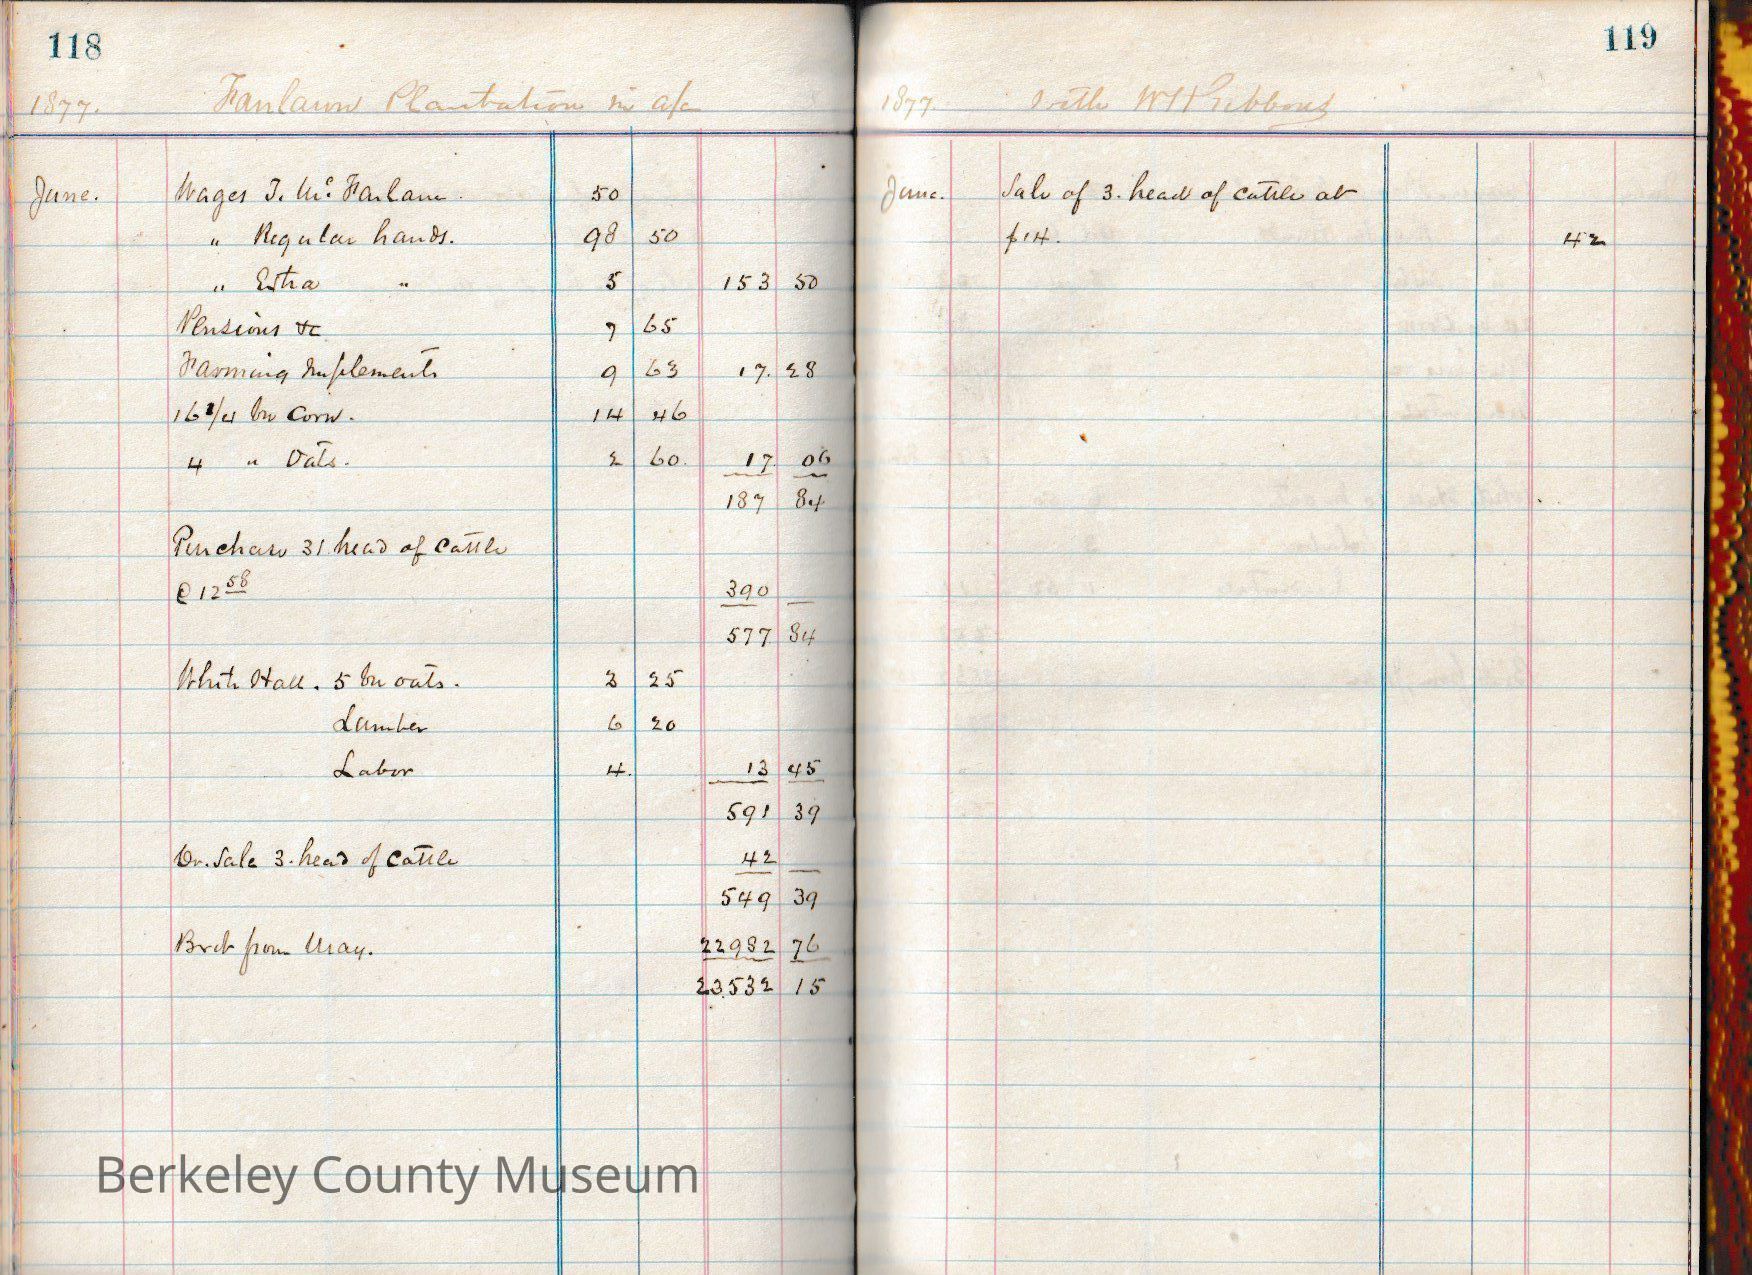 118
1877. Fanlawn Plantation in a/c
June. Wages J. Mc. Farlane. 50
" Regular hands. 98 50
" Extra " 5 153 50
Pensions &c 7 65
Farming Implements 9 63 17. 28
16 3/4 bu Corn. 14 46
4 " Oats. 2 60. 17. 06
187 84
Purchase 31 head of Cattle
@ 12 58 390 —
577 84
White Hall. 5 bu oats. 3 25
Lumber 6 20
Labor 4. 13 45
591 39
Cr. Sale 3. head of Cattle 42 —
549 39
Brot from May. 22982 76
23.532 15
119
1877 with WH Gibbons
June. Sale of 3. head of Cattle at
$14. 42
Berkeley County Museum